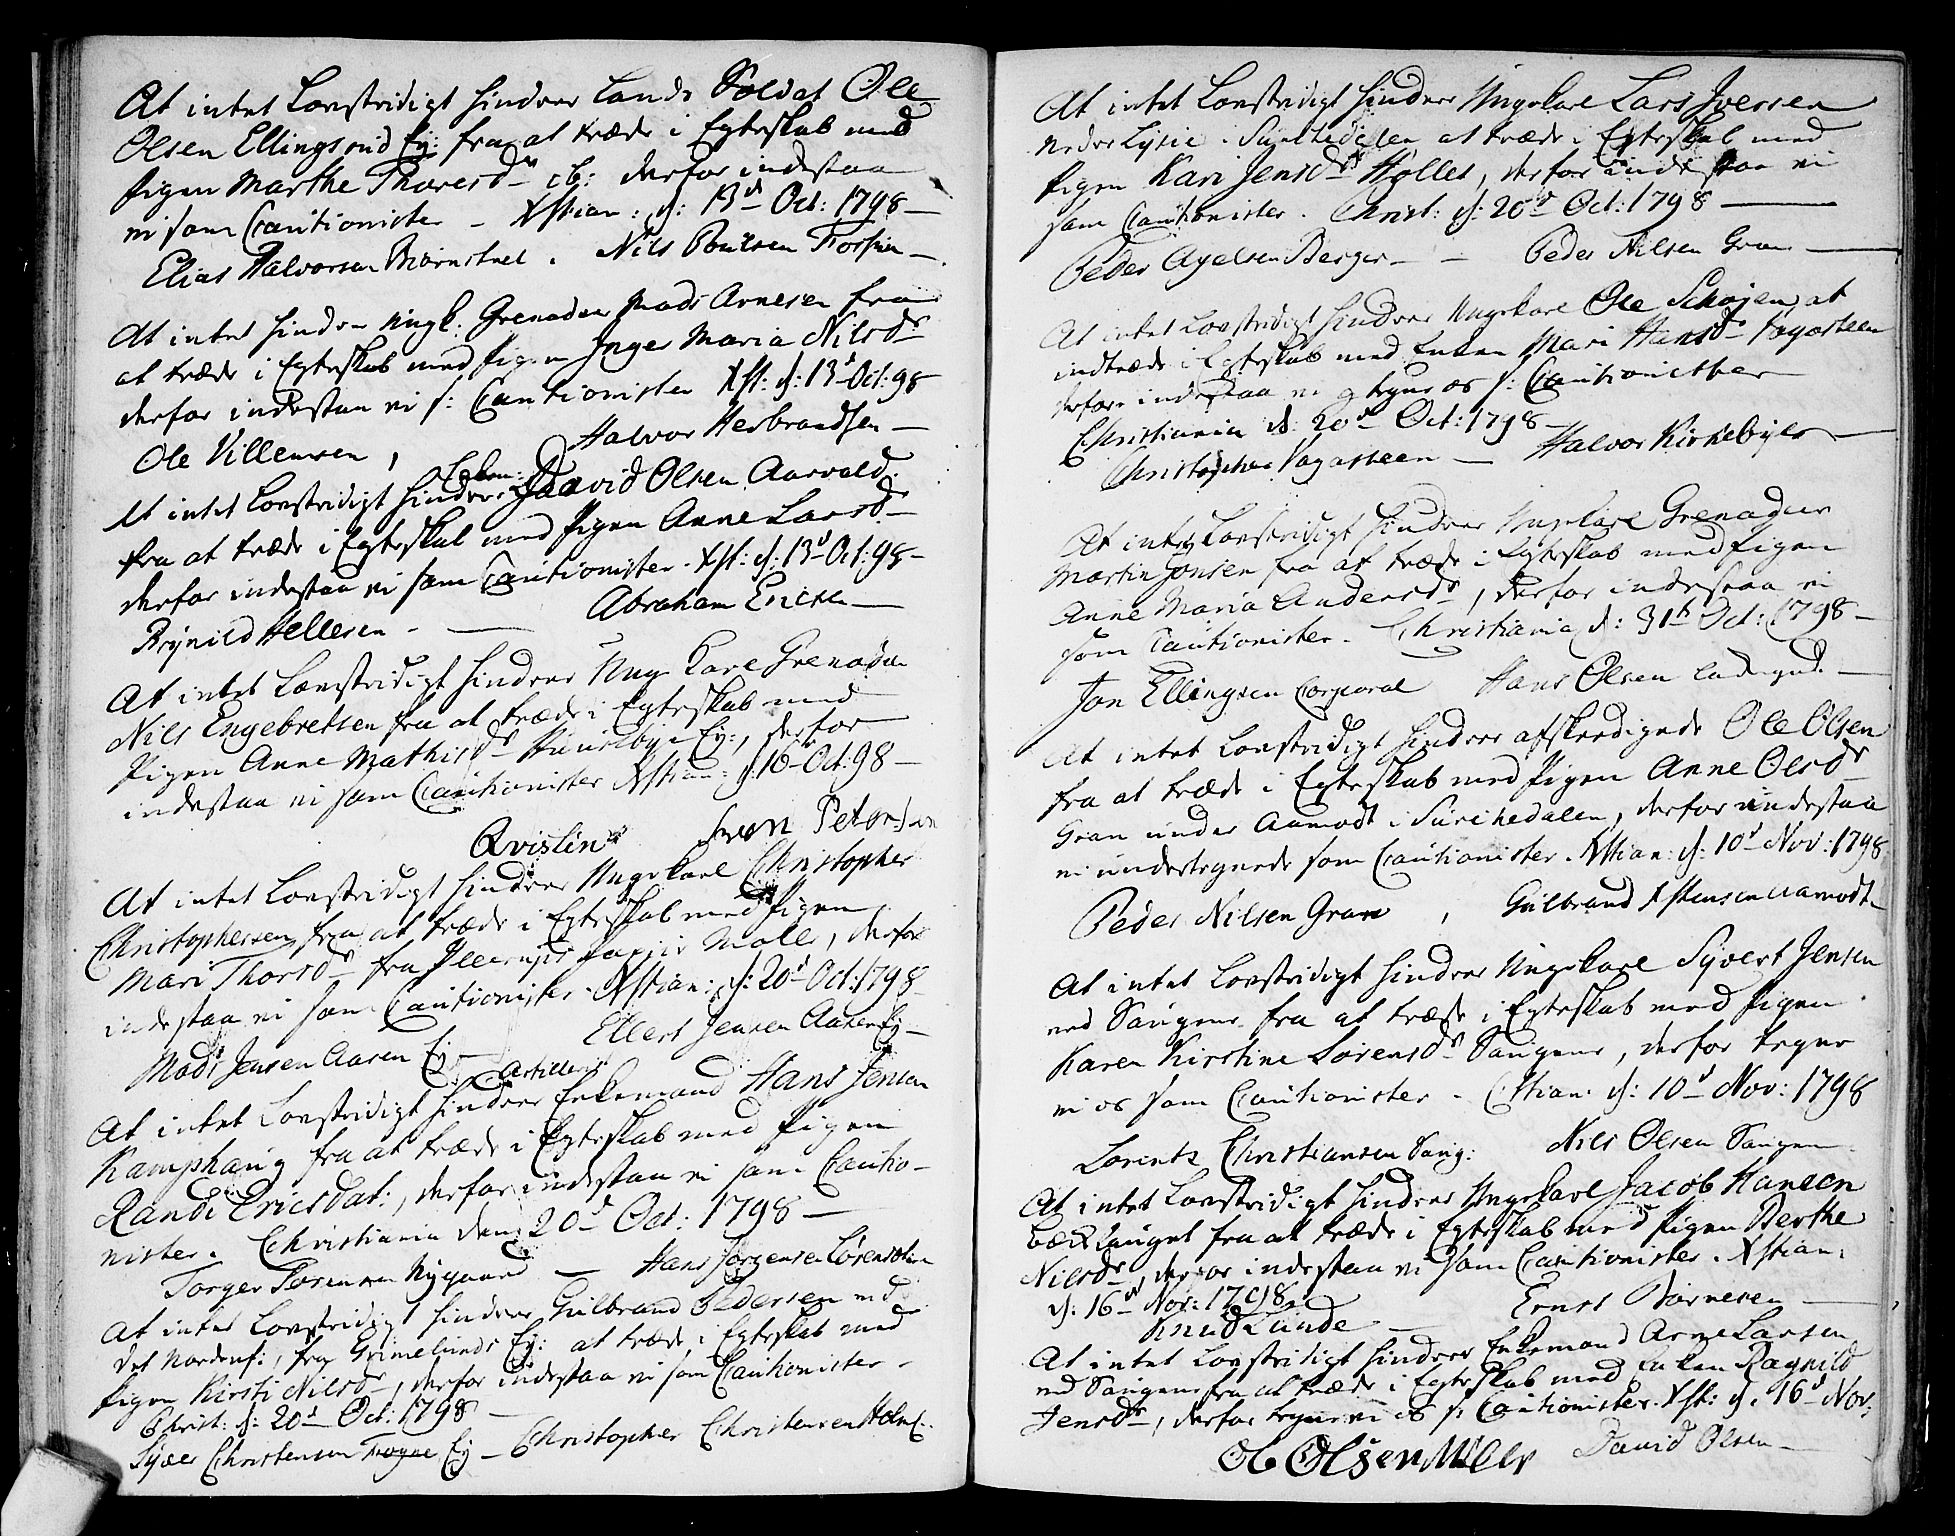 At intet Lovstridigt hindrer Lands Soldat Ole
Olsen Ellingsrud Ey: fra at træde i Egteskab med
Pigen Marthe Thoresdr ib: derfor indestaa
vi som Cautionister – Xstian: d: 13d Oct: 1798 –
Elias Halvorsen Biørnstuel. Nils Poulsen
At intet hindrer ungk: Grenadeer Mads Arnesen fra
at træde i Egteskab med Pigen Inger Maria Nilsdr
derfor indestaa vi s: Cautionister Xst: d: 13d Oct: 98
Ole Villemsen, Halvor Herbrandsen –
At intet Lovstridigt hindrer Daavid Olsen Aarvold
fra at træde i Egteskab med Pigen Anne Larsdr
derfor indestaa vi som Cautionister. Xst: d: 13d Oct: 98 –
Brynild Hellesen – Abraham Ericsen –
At intet Lovstridigt hindrer Ung Karl Grenadeer
Nils Engebretsen fra at træde i Egteskab med
Pigen Anne Mathisdr Ey:, derfor
indestaa vi som Cautionister Xstian: d: 16 Oct: 98 –
Qvislin Svon Peterssen
At intet Lovstridigt hindrer Ungekarl Christopher
Christophersen fra at træde i Egteskab med Pigen
Mari Thorsdr fra Papiir Mølle, derfor
indestaa vi som Cautionister. Xstian: d: 20d Oct: 1798
Mads Jensen Aasen Ey – Ellert Jensen Aasen Ey –
Artillerie
At intet Lovstridigt hindrer Enkemand Hans Jensen
Kamphaug fra at træde i Egteskab med Pigen
Randi Ericsdat:, derfor indestaa vi som Cautio-
nister. Christiania den 20d Oct: 1798 –
Torger Sørensen Nygaard – Hans Jørgensen
At intet Lovstridigt hindrer Gulbrand Pedersen ved
det Nordenf:, fra Grimelunds Ey: at træde i Egteskab med
Pigen Kirsti Nilsdr, derfor indestaa vi som Cautionister –
Christ: d: 20d Oct: 1798 –
Syver Christensen Frogne Ey – Christopher Christensen
At intet Lovstridigt hindrer Ungekarl Lars Iversen
Nedre Lysie i Sørkedalen at træde i Egteskab med
Pigen Kari Jensdr Holles, derfor indestaa vi
som Cautionister. Christ: d: 20d Oct: 1798 –
Peder Axelsen Berger – – Peder Nilsen Gran –
At intet Lovstridigt hindrer Ungekarl Ole Schøjen at
indtræde i Egteskab med Enken Mari Hansdr Vagasteen
derfore indestaa vi og tegne os s: Cautionister
Christiania d: 20d Oct: 1798 –
Christopher Vagasteen – Halvor Kirkebye –
At intet Lovstridigt hindrer Ungekarl Grenadeer
Martin Jonsen fra at træde i Egteskab med Pigen
Anne Maria Andersdr, derfor indestaa vi
som Cautionister. Christiania d: 31te Oct: 1798 –
Jon Ellingsen Corporal Hans Olsen
At intet Lovstridigt hindrer afskeedigede Ole Olsen
fra at træde i Egteskab med Pigen Anne Olsdr
Gran under Aamodt i Sørchedalen, derfor indestaa
vi undertegnede som Cautionister. Xstian: d: 10d Nov: 1798
Peder Nilsen Gran, Gulbrand Xstensen Aamodt –
At intet Lovstridigt hindrer Ungekarl Syvert Jensen
ved Saugene fra at træde i Egteskab med Pigen
Karen Kirstine Lorensdr Saugene, derfor tegne
vi os som Cautionister – Cstian: d: 10d Nov: 1798
Lorentz Christiansen Saug: Nils Olsen Saugen
At intet Lovstridigt hindrer Ungekarl Jacob Hansen
Bæcklauget fra at træde i Egteskab med Pigen Berthe
Nilsdr, derfor indestaa vi som Cautionister. Xstian:
d: 16d Nov: 1798.
Knud Lunde – Ernst Børnesen –
At intet Lovstridigt hindrer Enkemand Arne Larsen
ved Saugene fra at træde i Egteskab med Enken Ragnild
Jensdr, derfor tegne vi os s: Cautionister. Xst: d: 16d Nov:
Ole Olsen Møller David Olsen –